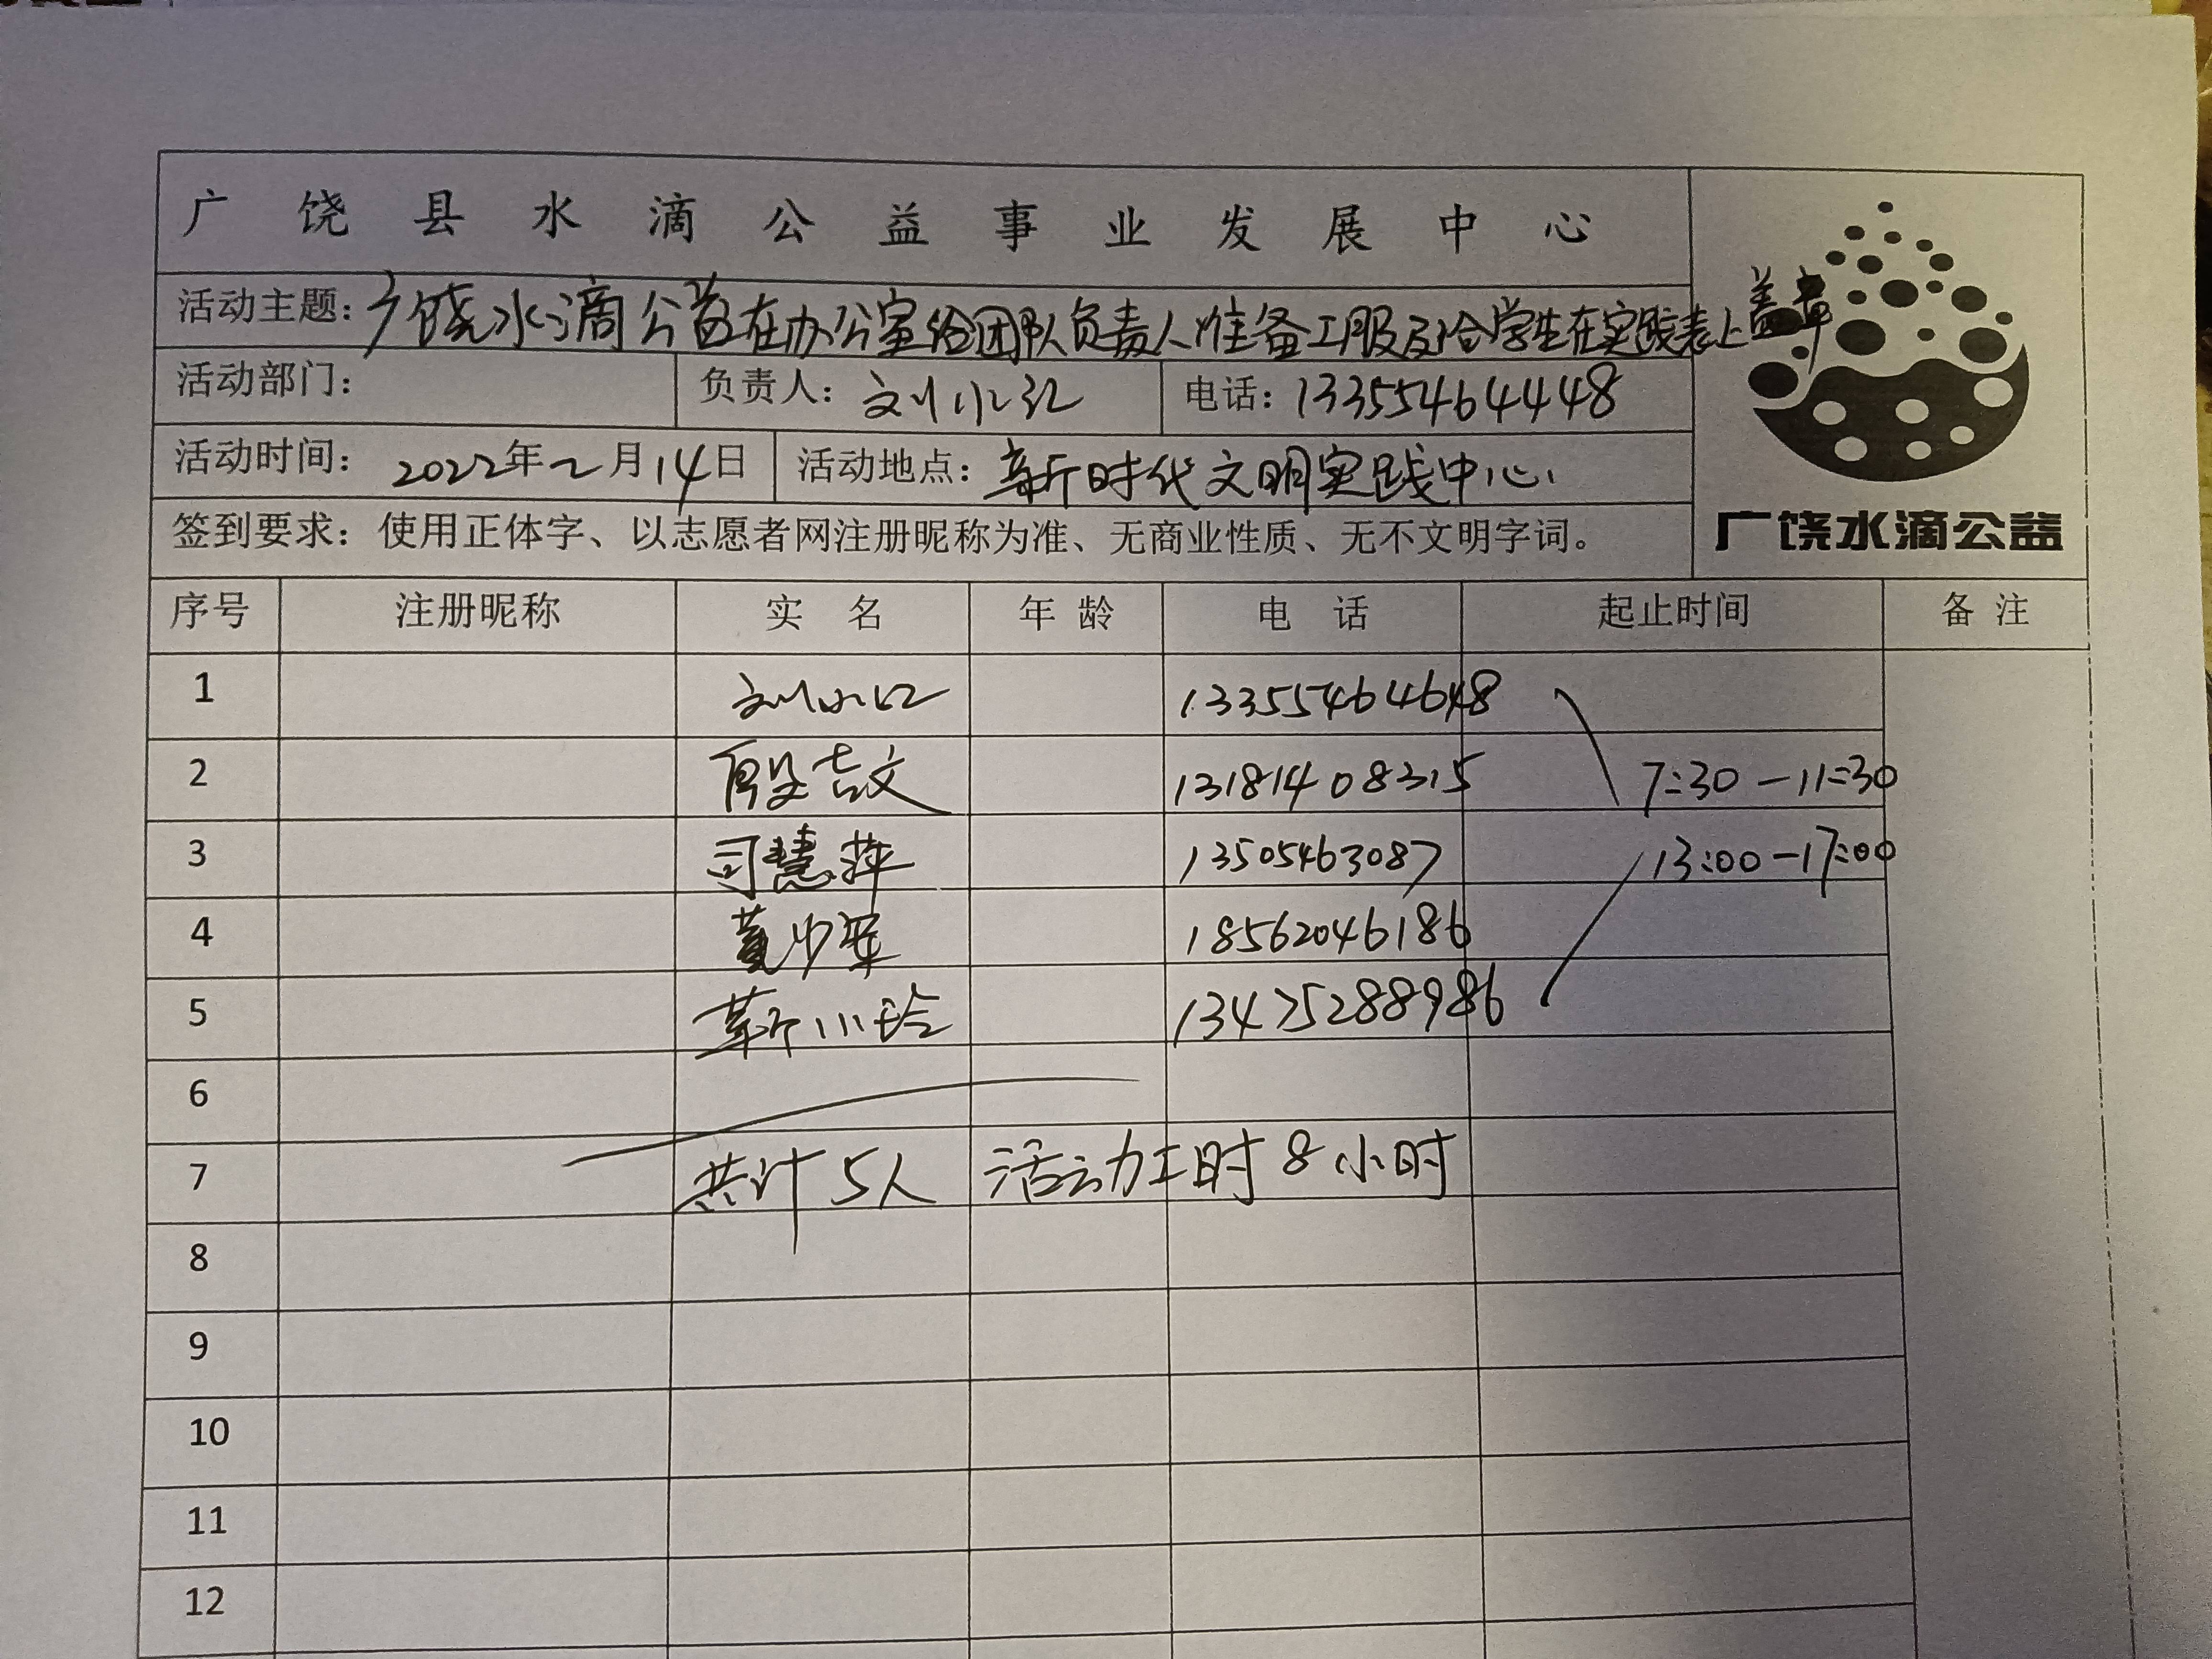 广饶县水滴公益事业发展中心
活动主题：广饶水滴公益在办公室给团队负责人准备工服及给学生在实践表上盖章
活动部门： 负责人：刘小红 电话：13355464448
活动时间：2022年2月14日 活动地点：新时代文明实践中心
签到要求：使用正体字、以志愿者网注册昵称为准、无商业性质、无不文明字词。
广饶水滴公益
序号 注册昵称 实名 年龄 电话 起止时间 备注
1 刘小红 13355464648
2 殷吉文 13181408315 7:30-11:30
3 司慧萍 13505463087 13:00-17:00
4 黄少军 18562046186
5 靳小玲 13475288986
6
7 共计5人 活动工时8小时
8
9
10
11
12